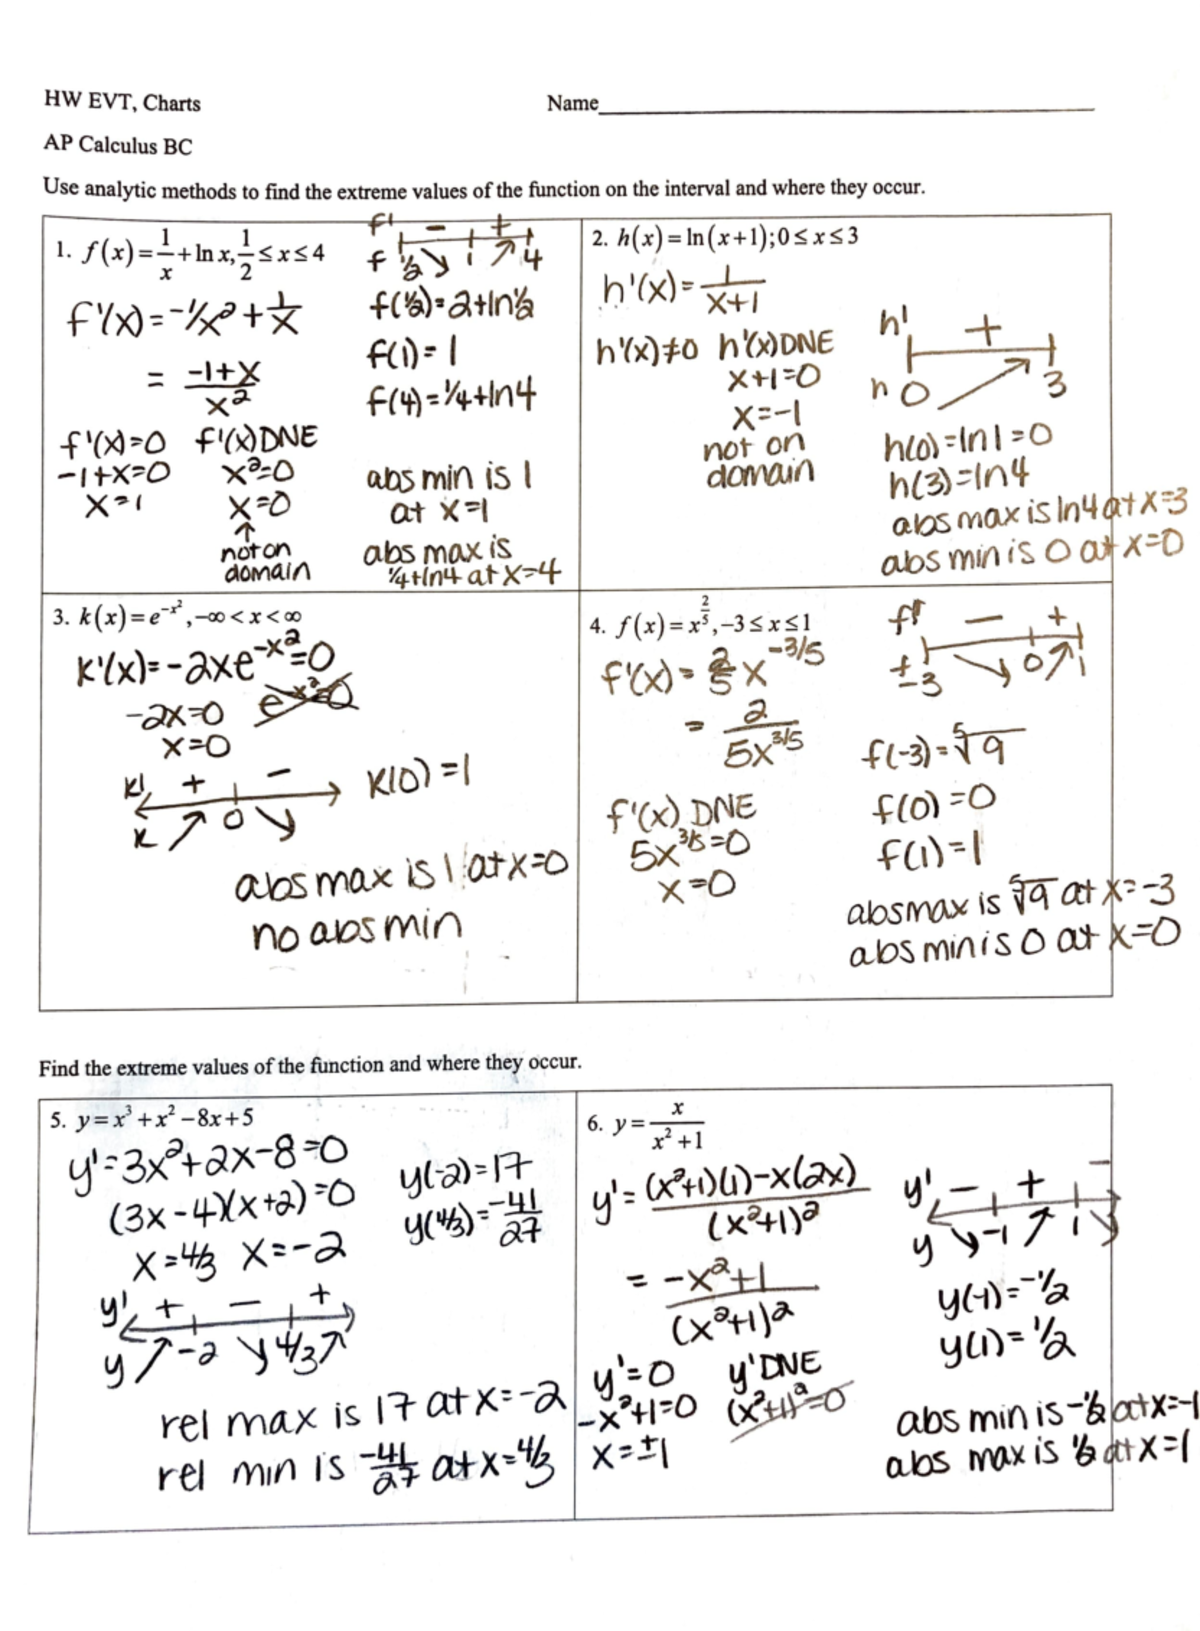 HW EVT, Charts
Name
AP Calculus BC
Use analytic methods to find the extreme values of the function on the interval and where they occur.
1. f(x)=1/x+ln x, 1/2≤x≤4
f'(x)=-1/x²+1/x
= (-1+x)/x²
f'(x)=0 f'(x)DNE
-1+x=0 x²=0
x=1 x=0
↑
not on
domain
f' - +
f 1/2 ↘ 1 ↗ 4
f(1/2)=2+ln1/2
f(1)=1
f(4)=1/4+ln4
abs min is 1
at x=1
abs max is
1/4+ln4 at x=4
2. h(x)=ln(x+1);0≤x≤3
h'(x)=1/(x+1)
h'(x)≠0 h'(x)DNE
x+1=0
x=-1
not on
domain
h' +
h 0 ↗ 3
h(0)=ln1=0
h(3)=ln4
abs max is ln4 at x=3
abs min is 0 at x=0
3. k(x)=e^(-x²),-∞<x<∞
k'(x)=-2xe^(-x²)=0
-2x=0 e^(-x²)=0
x=0
k' + -
k ↗ 0 ↘
k(0)=1
abs max is 1 at x=0
no abs min
4. f(x)=x^(2/5),-3≤x≤1
f'(x)=2/5 x^(-3/5)
= 2/(5x^(3/5))
f'(x) DNE
5x^(3/5)=0
x=0
f' - +
f -3 ↘ 0 ↗ 1
f(-3)=⁵√9
f(0)=0
f(1)=1
abs max is ⁵√9 at x=-3
abs min is 0 at x=0
Find the extreme values of the function and where they occur.
5. y=x³+x²-8x+5
y'=3x²+2x-8=0
(3x-4)(x+2)=0
x=4/3 x=-2
y' + - +
y ↗ -2 ↘ 4/3 ↗
y(-2)=17
y(4/3)=-41/27
rel max is 17 at x=-2
rel min is -41/27 at x=4/3
6. y=x/(x²+1)
y'=((x²+1)(1)-x(2x))/(x²+1)²
= (-x²+1)/(x²+1)²
y'=0 y'DNE
-x²+1=0 (x²+1)²=0
x=±1
y' - + -
y ↘ -1 ↗ 1 ↘
y(-1)=-1/2
y(1)=1/2
abs min is -1/2 at x=-1
abs max is 1/2 at x=1